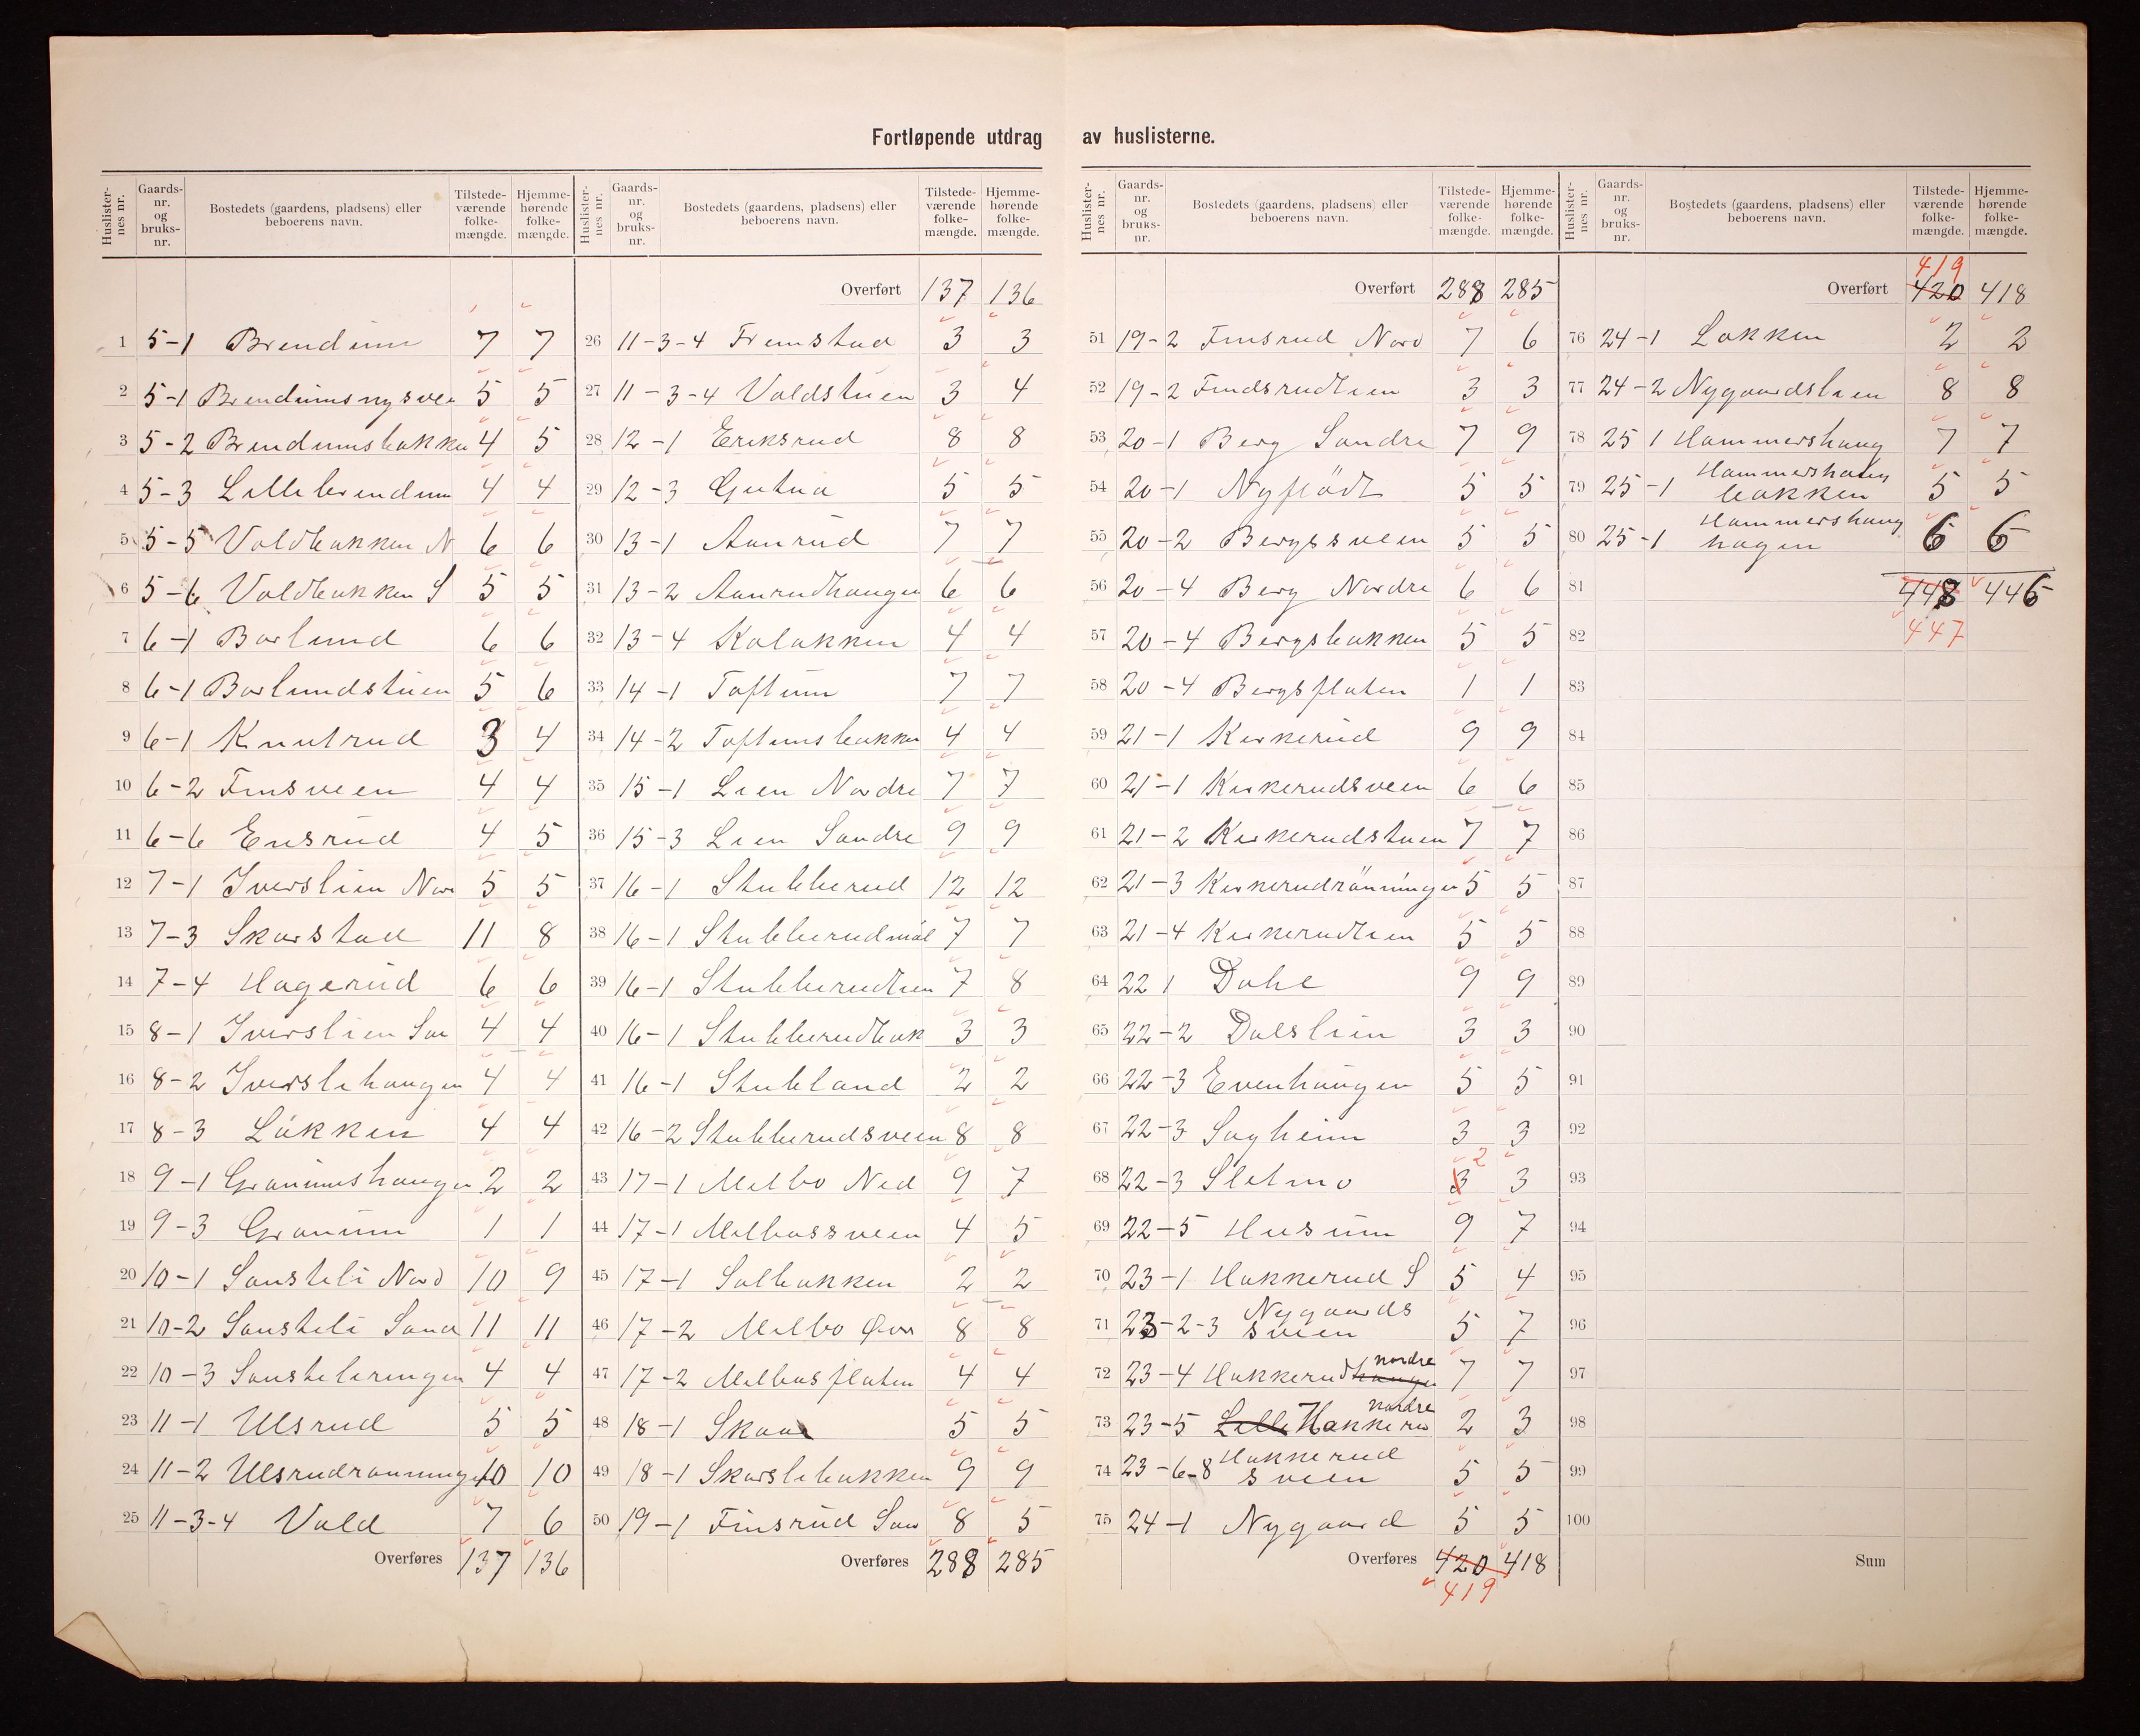 Fortløpende utdrag av huslisterne.
Huslisternes nr. Gaards-nr. og bruks-nr. Bostedets (gaardens, pladsens) eller beboerens navn. Tilstedeværende folkemængde. Hjemmehørende folkemængde.
1 5-1 Brendum 7 7
2 5-1 Brendumsnysveen 5 5
3 5-2 Brendumsbakken 4 5
4 5-3 Lillebrendum 4 4
5 5-5 Voldbakken N 6 6
6 5-6 Voldbakken S 5 5
7 6-1 Borlund 6 6
8 6-1 Borlundstuen 5 6
9 6-1 Knutrud 3 4
10 6-2 Finsveen 4 4
11 6-6 Ensrud 4 5
12 7-1 Iverslien Nor 5 5
13 7-3 Skarstad 11 8
14 7-4 Hagerud 6 6
15 8-1 Iverslien Sør 4 4
16 8-2 Iverslihaugen 4 4
17 8-3 Løkken 4 4
18 9-1 Granumshaugen 2 2
19 9-3 Granum 1 1
20 10-1 Sousteli Nord 10 9
21 10-2 Sousteli Sønd 11 11
22 10-3 Soustelieringen 4 4
23 11-1 Ulsrud 5 5
24 11-2 Ulsrudrønningen 10 10
25 11-3-4 Vold 7 6
Overføres 137 136
Huslisternes nr. Gaards-nr. og bruks-nr. Bostedets (gaardens, pladsens) eller beboerens navn. Tilstedeværende folkemængde. Hjemmehørende folkemængde.
Overført 137 136
26 11-3-4 Fremstad 3 3
27 11-3-4 Voldstuen 3 4
28 12-1 Eriksrud 8 8
29 12-3 Gutua 5 5
30 13-1 Aanrud 7 7
31 13-2 Aanrudhaugen 6 6
32 13-4 Kolokken 4 4
33 14-1 Toftum 7 7
34 14-2 Toftumsbakken 4 4
35 15-1 Lien Nordre 7 7
36 15-3 Lien Søndre 9 9
37 16-1 Stubberud 12 12
38 16-1 Stubberudmøl 7 7
39 16-1 Stubberudlien 7 8
40 16-1 Stubberudbak 3 3
41 16-1 Stubland 2 2
42 16-2 Stubberudsveen 8 8
43 17-1 Melbo Ned 9 7
44 17-1 Melbossveen 4 5
45 17-1 Solbakken 2 2
46 17-2 Melbo Øvr 8 8
47 17-2 Melbosflaten 4 4
48 18-1 Skaar 5 5
49 18-1 Skarslibakken 9 9
50 19-1 Finsrud Søn 8 5
Overføres 288 285
Huslisternes nr. Gaards-nr. og bruks-nr. Bostedets (gaardens, pladsens) eller beboerens navn. Tilstedeværende folkemængde. Hjemmehørende folkemængde.
Overført 288 285
51 19-2 Finsrud Nord 7 6
52 19-2 Findsrudlien 3 3
53 20-1 Berg Søndre 7 9
54 20-1 Nyflødt 5 5
55 20-2 Bergssveen 5 5
56 20-4 Berg Nordre 6 6
57 20-4 Bergsbakken 5 5
58 20-4 Bergsflaten 1 1
59 21-1 Kirkerud 9 9
60 21-1 Kirkerudsveen 6 6
61 21-2 Kirkerudstuen 7 7
62 21-3 Kirkerudrønningen 5 5
63 21-4 Kirkerudlien 5 5
64 22 1 Dahl 9 9
65 22-2 Dalslien 3 3
66 22-3 Evenhaugen 5 5
67 22-3 Sagheim 3 3
68 22-3 Sletmo 3 2 3
69 22-5 Husum 9 7
70 23-1 Hakkerud S 5 4
71 23-2-3 Nygaards sveen 5 7
72 23-4 Hakkerudhaugen nordre 7 7
73 23-5 Lille Hakkerud nordre 2 3
74 23-6-8 Hakkerud sveen 5 5
75 24-1 Nygaard 5 5
Overføres 420 418
419
Huslisternes nr. Gaards-nr. og bruks-nr. Bostedets (gaardens, pladsens) eller beboerens navn. Tilstedeværende folkemængde. Hjemmehørende folkemængde.
419
Overført 420 418
76 24-1 Løkken 2 2
77 24-2 Nygaardslien 8 8
78 25 1 Hammershaug 7 7
79 25-1 Hammershaug bakken 5 5
80 25-1 Hammershaug hagen 6 6
81 448 446
82 447
83
84
85
86
87
88
89
90
91
92
93
94
95
96
97
98
99
100
Sum